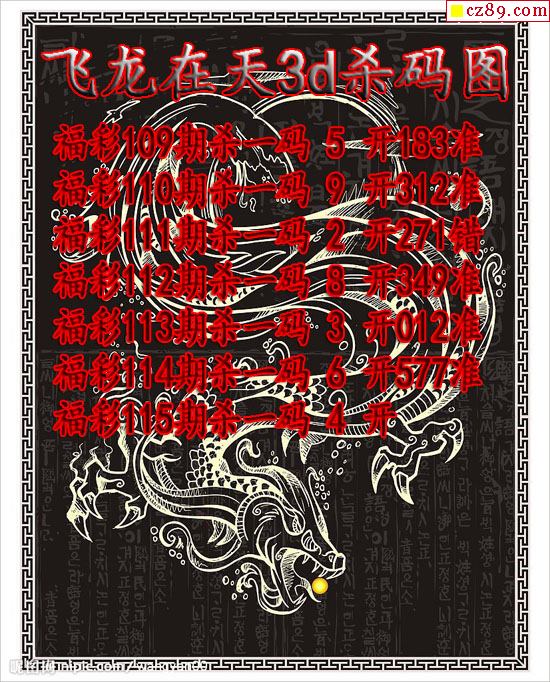 cz89.com
飞龙在天3d杀码图
福彩109期杀一码 5 开183准
福彩110期杀一码 9 开312准
福彩111期杀一码 2 开271错
福彩112期杀一码 8 开349准
福彩113期杀一码 3 开012准
福彩114期杀一码 6 开577准
福彩115期杀一码 4 开